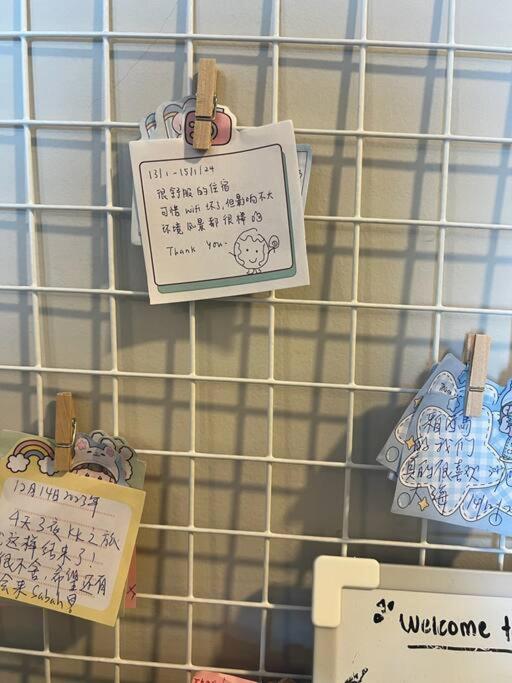 13/1 - 15/1/24
很舒服的住宿
可惜 wifi 坏了，但影响不大
环境风景都很棒的
Thank You.
12月14日2023年
4天3夜 KK之旅
这样结束了！
很不舍，希望还有
会来 Sabah
相内而
的我们
真的很喜欢
海
Welcome t